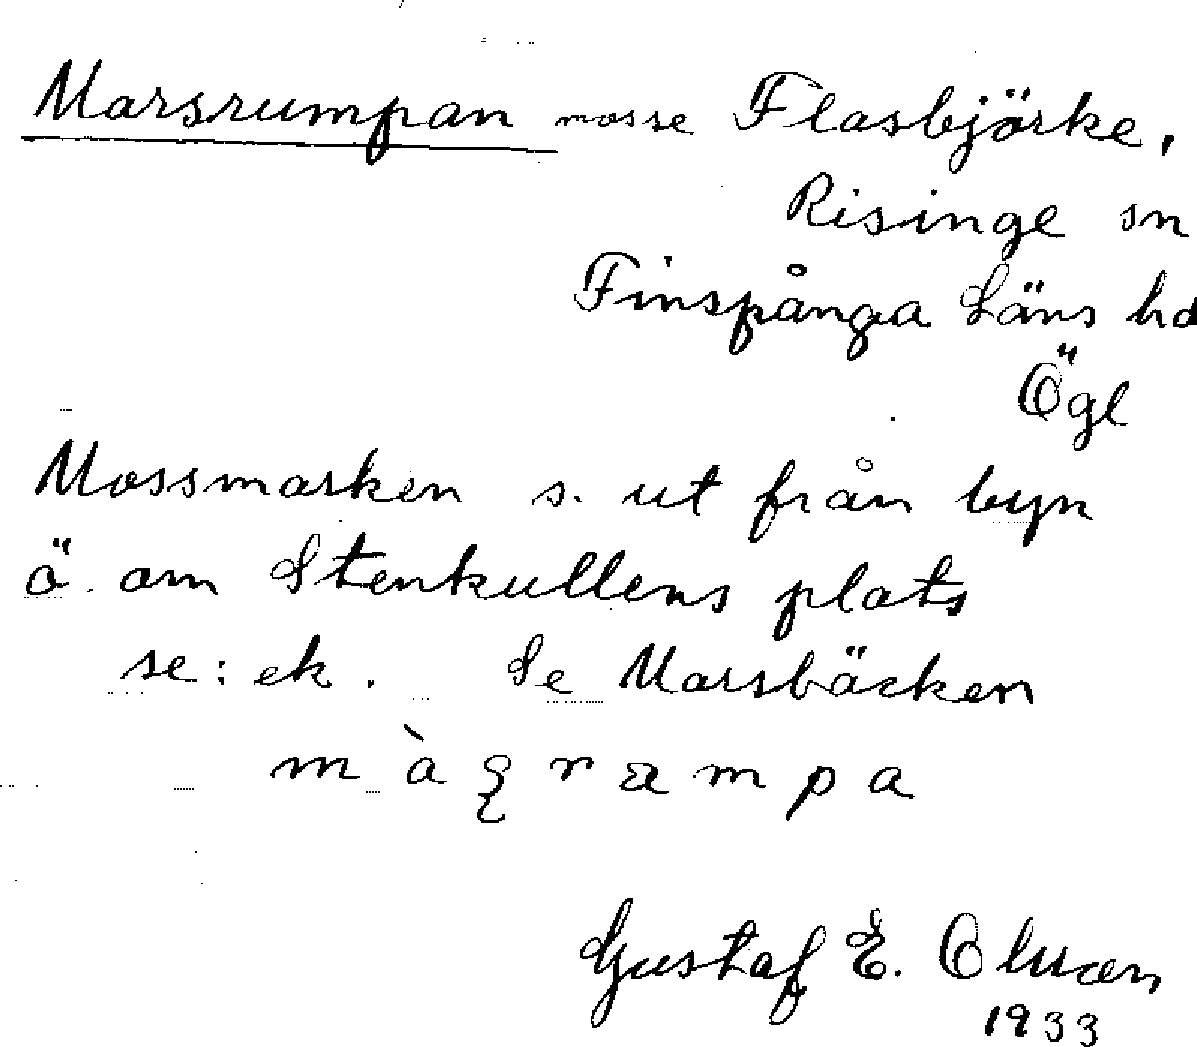 Marsrumpan mosse Flasbjörke,
Risinge sn
Finspånga Läns hd
Ögl
Mossmarken s. ut från byn
ö. om Stenkullens plats
se: ek. Se Marsbäcken
Gustaf E.
1933